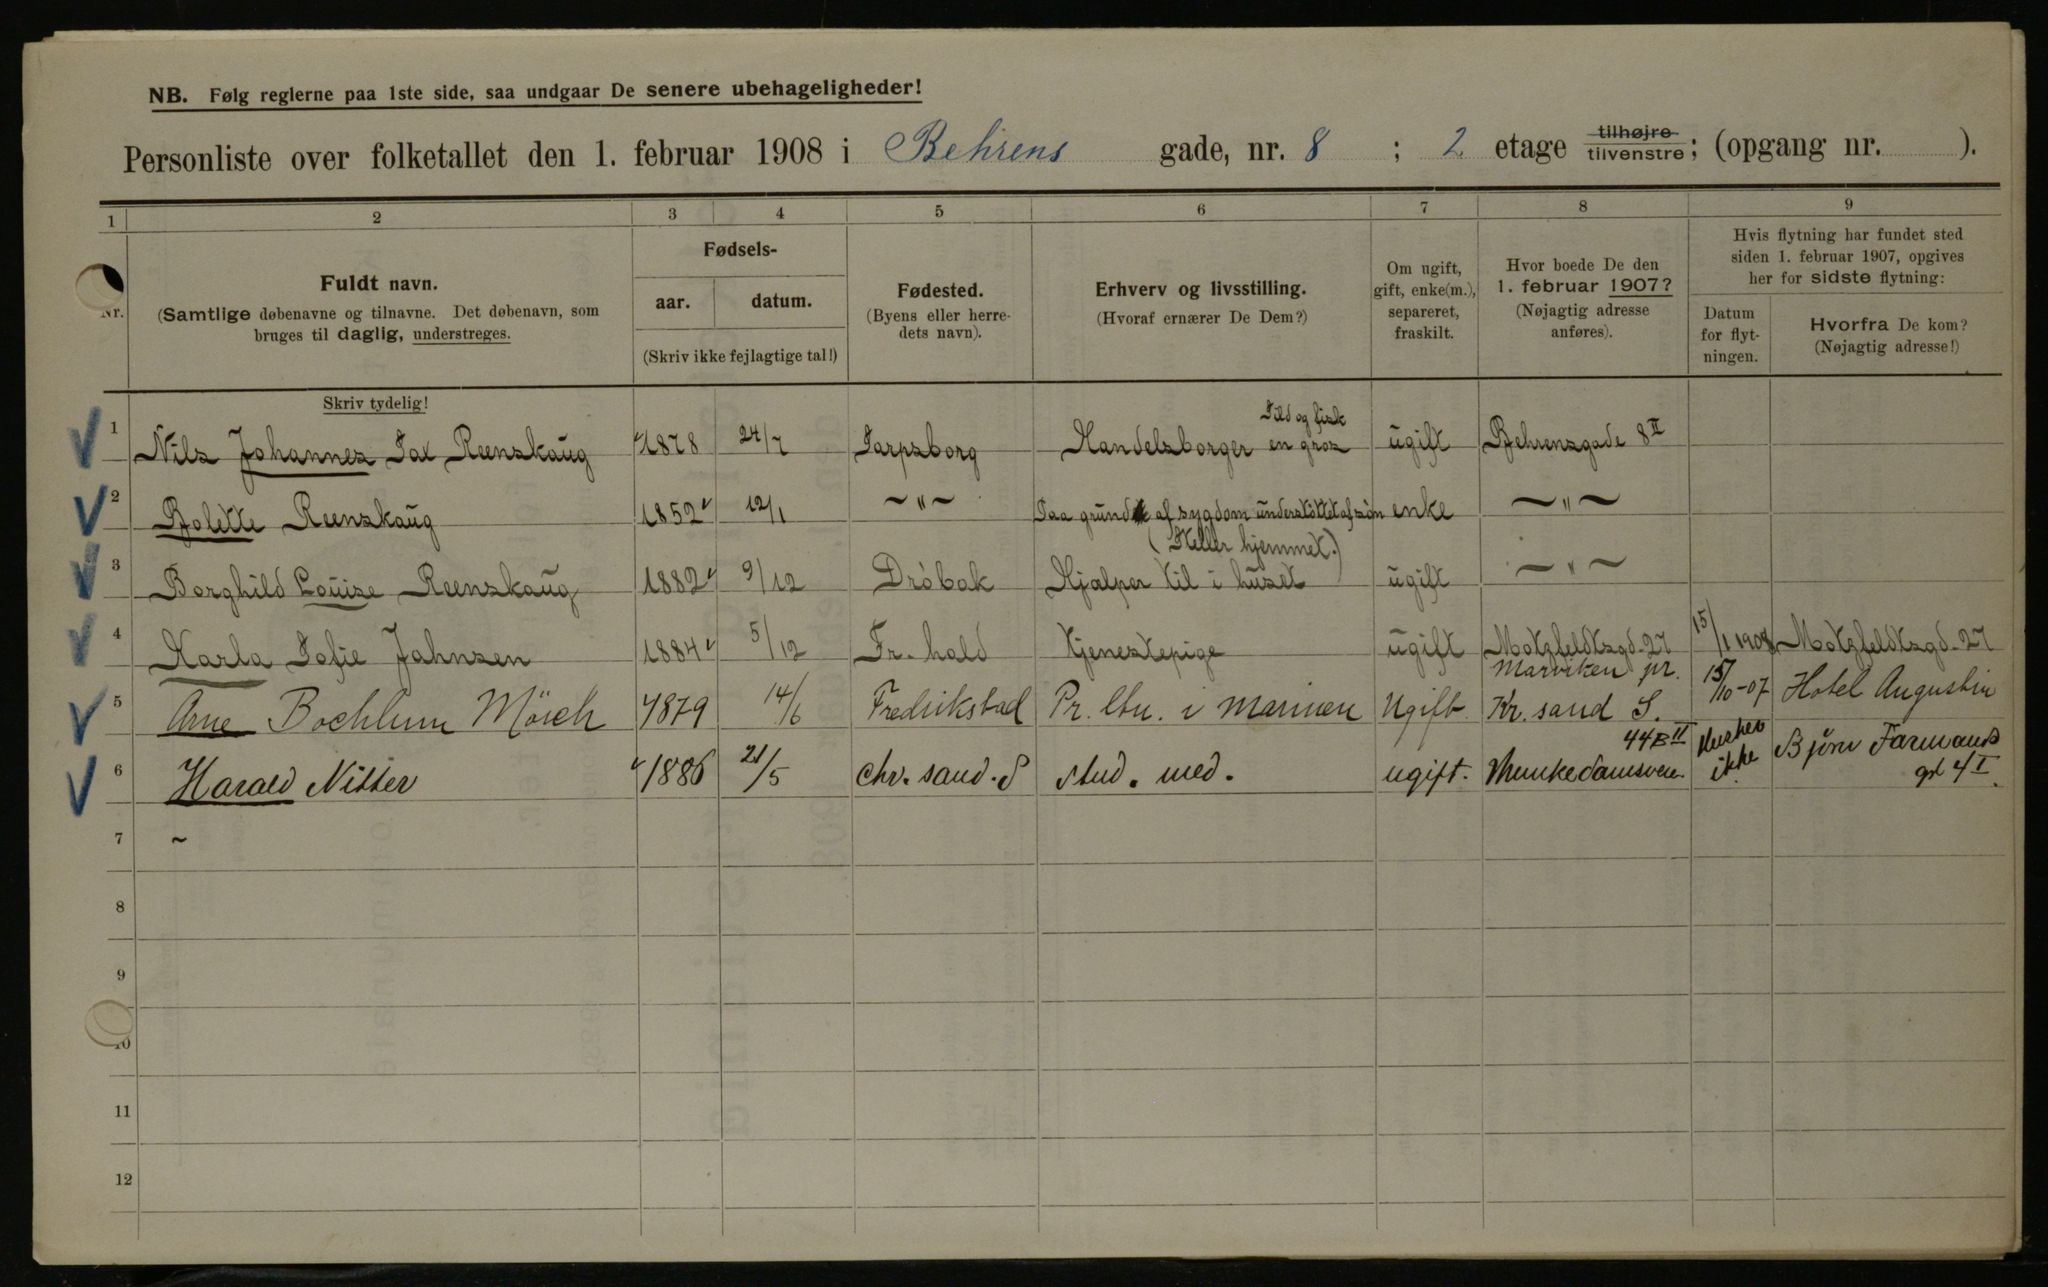 NB. Følg reglerne paa 1ste side, saa undgaar De senere ubehageligheder!
Personliste over folketallet den 1. februar 1908 i Behrens gade, nr. 8 ; 2 etage tilhøjre tilvenstre; (opgang nr. ).
1 2 3 4 5 6 7 8 9
Nr.
Fuldt navn.
(Samtlige døbenavne og tilnavne. Det døbenavn, som
bruges til daglig, understreges.
Skriv tydelig!
Fødsels-
aar. datum.
(Skriv ikke fejlagtige tal!)
Fødested.
(Byens eller herre-
dets navn).
Erhverv og livsstilling.
(Hvoraf ernærer De Dem?)
Om ugift,
gift, enke(m.),
separeret,
fraskilt.
Hvor boede De den
1. februar 1907?
(Nøjagtig adresse
anføres).
Hvis flytning har fundet sted
siden 1. februar 1907, opgives
her for sidste flytning:
Datum
for flyt-
ningen.
Hvorfra De kom?
(Nøjagtig adresse!)
Sild og fisk
1 Nils Johannes Sax Reenskaug 1878 24/7 Sarpsborg Handelsborger en gros ugift Behrensgade 8 II
2 Bolette Reenskaug 1852 12/1 —"— Paa grund af sygdom understöttet af sön enke —"—
(Steller hjemmet.)
3 Borghild Louise Reenskaug 1882 9/12 Dröbak Hjælper til i huset ugift —"—
4 Karla Sofie Jahnsen 1884 5/12 Fr.hald tjenestepige ugift Motzfeldtsgd. 27 15/1 1908 Motzfeldtsgd. 27
Marviken pr.
5 Arne Bochlum Mörch 1879 14/6 Fredrikstad Pr. ltn. i Marinen Ugift Kr. sand S. 15/10-07 Hotel Augustin
44B II
6 Harald Nitter 1886 21/5 Chr. sand. S stud. med. ugift. Munkedamsvein Husker ikke Bjørn Farmands
gd 4 I.
7 ~
8
9
10
11
12